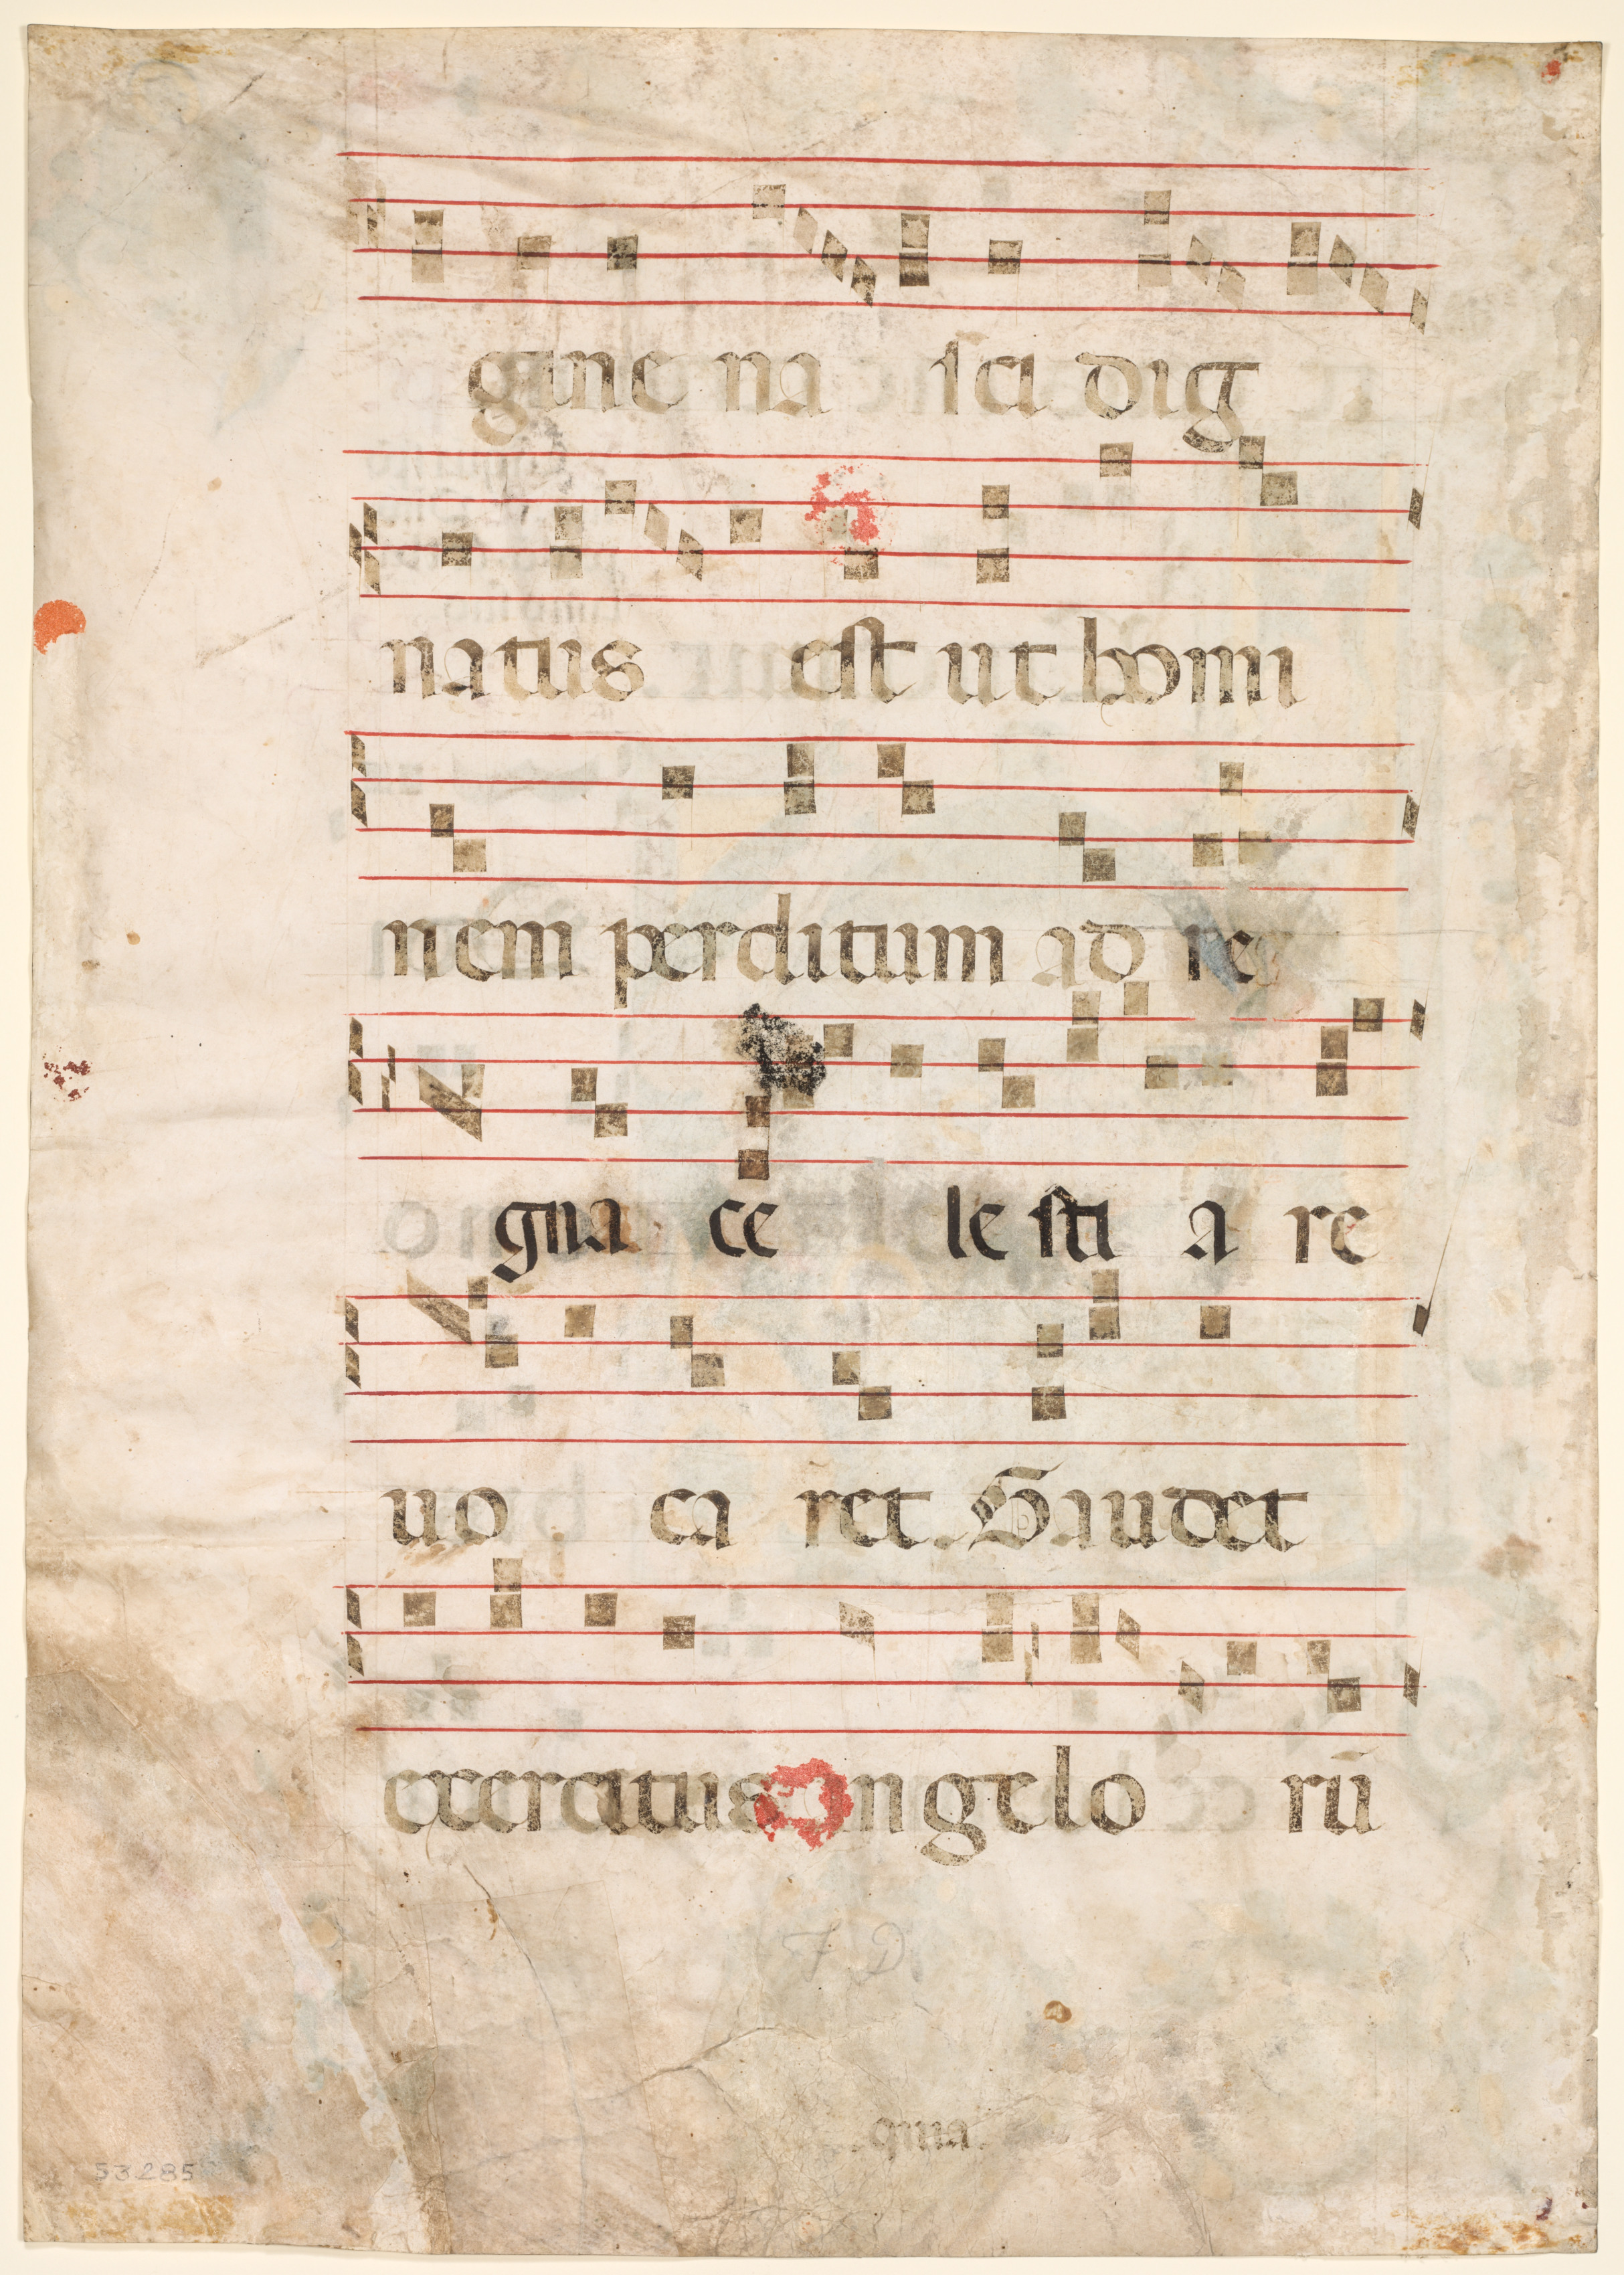 gine na sci dig
natus est ut homi
nem perditum ad re
gna ce le sti a re
uo ca ret. Gaudet
exercitus angelo rū
F D
.quia.
53285